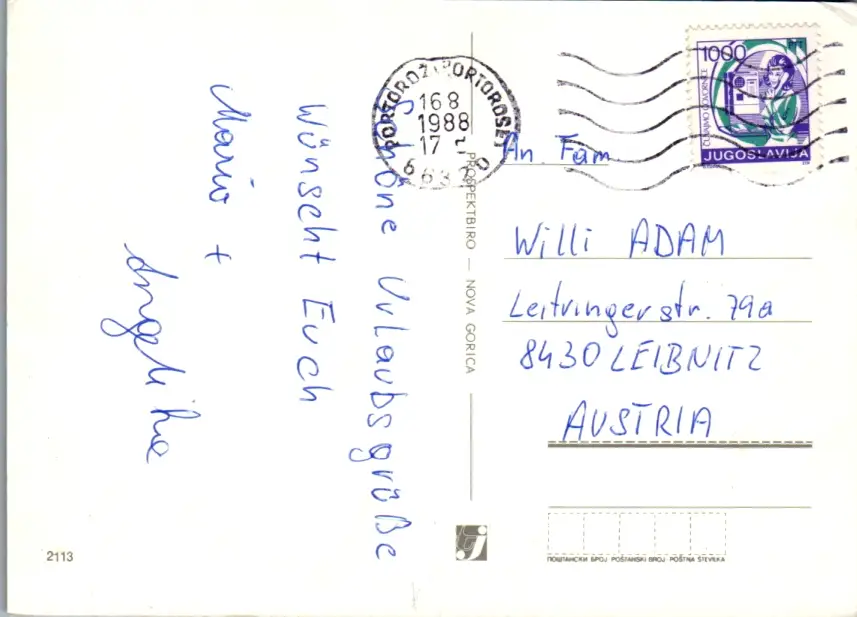 Schöne Urlaubsgrüße
Wünscht Euch
Mario +
Angelika
PORTOROŽ PORTOROSE
16 8
1988
17
66320
1000
PTT
ČUVAJMO GOVORNICE
JUGOSLAVIJA
An. Fam
Willi ADAM
Leitringerstr. 79a
8430 LEIBNITZ
AUSTRIA
PROSPEKTBIRO — NOVA GORICA
2113
ПОШТАНСКИ БРОЈ POŠTANSKI BROJ POŠTNA ŠTEVILKA